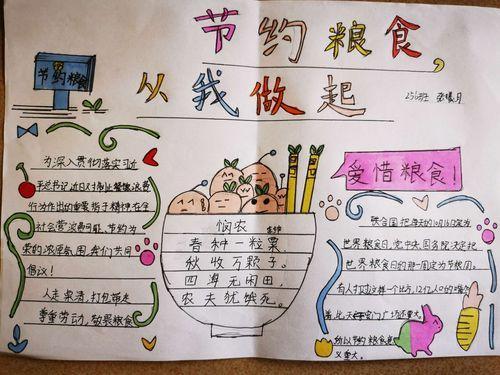 节约粮食,
从我做起
256班
节约粮食
为深入贯彻落实习近
平总书记近日对制止餐饮浪费
行为作出的重要指示精神在全
社会营造浪费可耻、节约为
荣的浓厚氛围我们共同
倡议!
人走桌清,打包带走
尊重劳动,敬畏粮食
悯农
李绅
春种一粒粟
秋收万颗子。
四海无闲田,
农夫犹饿死。
爱惜粮食!
联合国把每年的10月16日定为
世界粮食日,党中央国务院决定把
世界粮食日的那一周定为节粮周。
有人打过这样一个比方,12亿人口的
比天安门广场还重大。
所以节约粮食意
义重大。